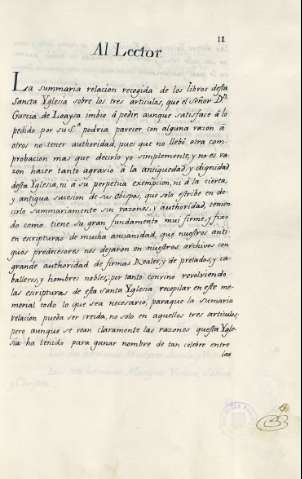 11
Al Lector
La summaria relacion recogida de los libros desta
Sancta Yglesia sobre los tres articulos, que el señor Dn.
Garcia de Loaysa imbio á pedir aunque satisface á lo
pedido por su Sa. podria parecer con alguna razon á
otros no tener authoridad, pues que no llebó otra com-
probacion mas que decirlo yo simplemente, y no es ra-
zon hacer tanto agravio á la antiguedad, y dignidad
desta Yglesia, ni á su perpetua exempcion, ni á la cierta,
y antigua sucesion de sus obispos, que solo estribe en de-
cirlo summariamente sin razones, y authoridad, tenien-
do como tiene su gran fundamento mui firme, y fixo
en escripturas de mucha amcianidad, que nuestros anti-
guos predecesores nos dejaron en nuestros archivos con
grande authoridad de firmas Reales, y de prelados, y ca-
balleros, y hombres nobles; por tanto convino revolviendo
las escripturas de esta santa Yglesia recopilar en este me-
morial todo lo que sea necesario, paraque la sumaria
relacion pueda ser creida, no solo en aquellos tres articulos,
pero aunque se vean claramente las razones questa Ygle-
sia ha tenido para ganar nombre de tan celebre entre
las